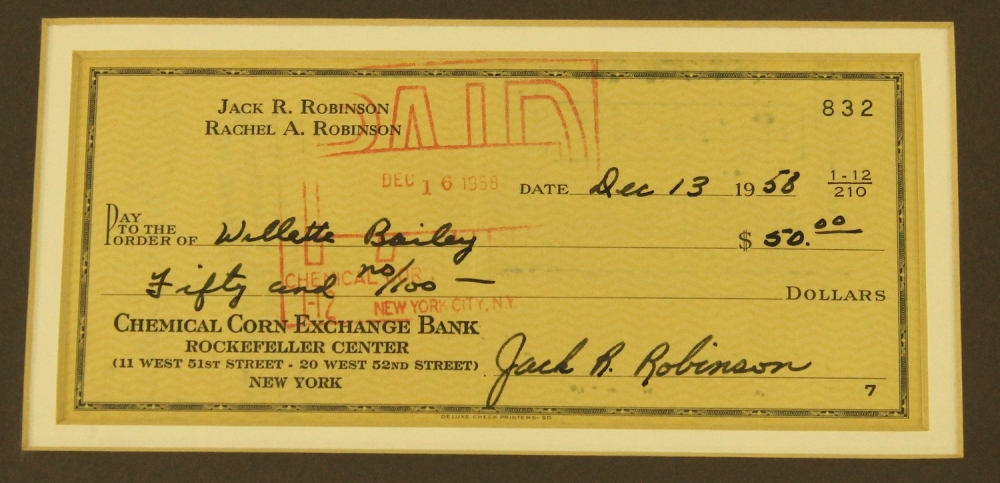 JACK R. ROBINSON
RACHEL A. ROBINSON
832
PAID
DEC 16 1958
DATE Dec 13 1958
1-12
210
PAY TO THE ORDER OF Willette Bailey $ 50.00
Fifty and no/100 — DOLLARS
CHEMICAL COR
1-12 NEW YORK CITY, N.Y.
CHEMICAL CORN EXCHANGE BANK
ROCKEFELLER CENTER
(11 WEST 51ST STREET - 20 WEST 52ND STREET)
NEW YORK
Jack R. Robinson
7
DELUXE CHECK PRINTERS